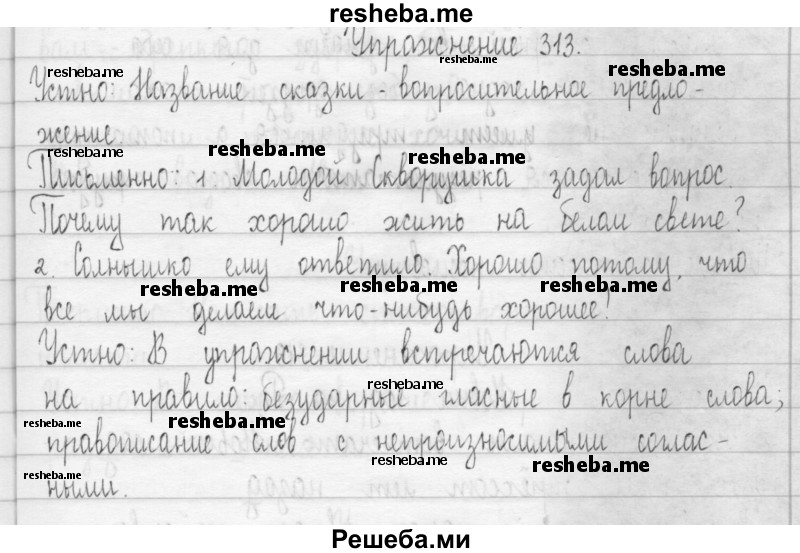 resheba.me
Упражнение 313.
resheba.me
resheba.me
resheba.me
Устно: Название сказки - вопросительное предло-
жение.
resheba.me
resheba.me
resheba.me
Письменно: 1 Молодой Скворушка задал вопрос.
Почему так хорошо жить на белом свете?
2. Солнышко ему ответило. Хорошо потому, что
resheba.me
resheba.me
resheba.me
все мы делаем что-нибудь хорошее!
Устно: В упражнении встречаются слова
resheba.me
на правило: Безударные гласные в корне слова;
resheba.me
resheba.me
правописание слов с непроизносимыми соглас-
resheba.me
resheba.me
resheba.me
ными.
Решеба.ми